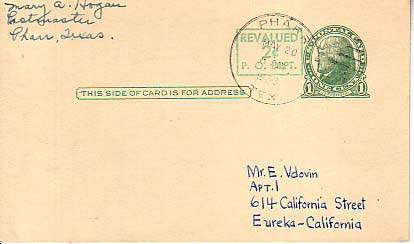 Mary A. Hogan
Postmaster
Pharr, Texas.
REVALUED
2¢
P. O. DEPT.
PHARR
MAY 20
TEX.
1 1
THIS SIDE OF CARD IS FOR ADDRESS
Mr. E. Vdovin
APT. 1
614 California Street
Eureka-California